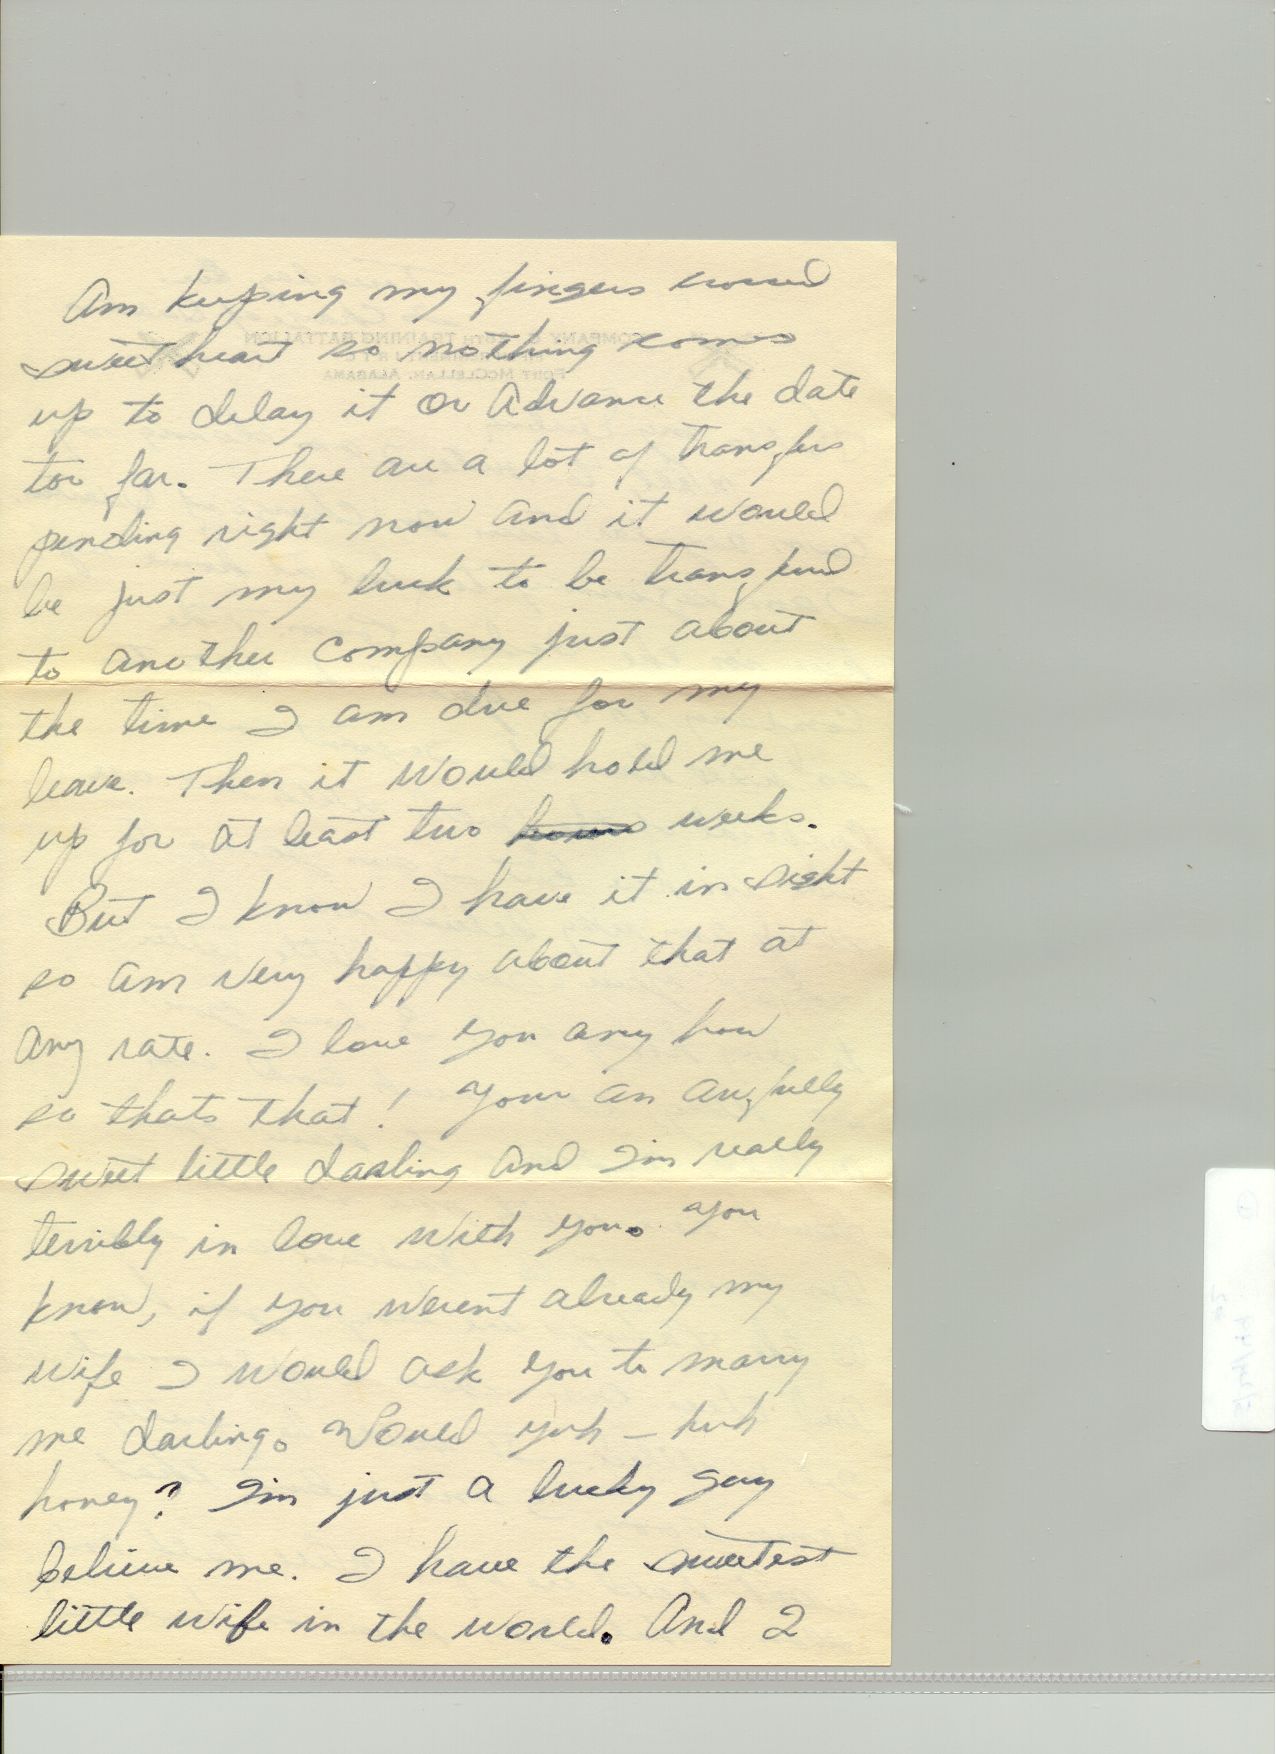 Am keeping my fingers crossed
sweetheart so nothing comes
up to delay it or advance the date
too far. There are a lot of transfers
pending right now and it would
be just my luck to be transfered
to another company just about
the time I am due for my
leave. Then it would hold me
up for at least two weeks.
But I know I have it in sight
so am very happy about that at
any rate. I love you any how
so thats that! Your an awfully
sweet little darling and I'm really
terribly in love with you. You
know, if you werent already my
wife I would ask you to marry
me darling. Would yuh - huh
honey? I'm just a lucky guy
believe me. I have the sweetest
little wife in the world. And I
TRAINING BATTALION
FORT MCCLELLAN, ALABAMA